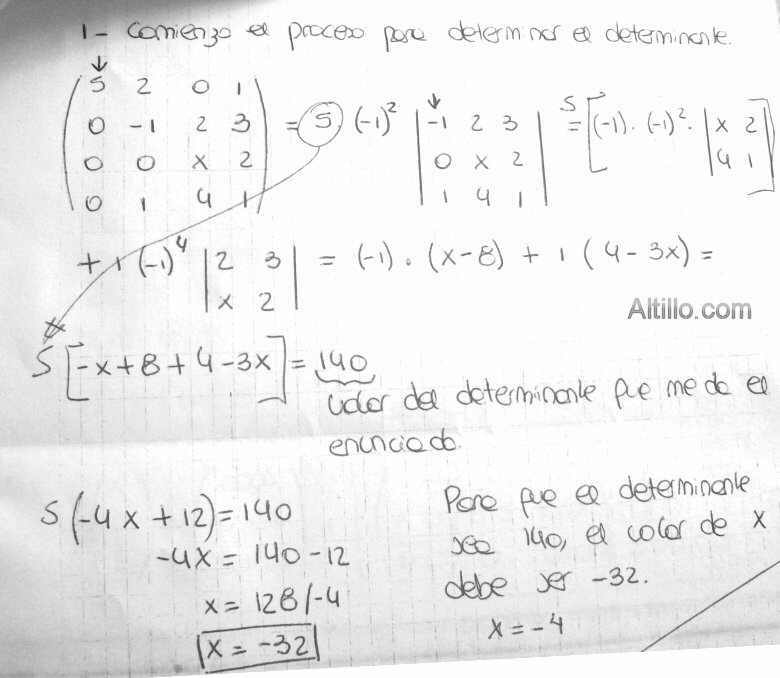 1- Comienzo el proceso para determinar el determinante.
5 2 0 1
0 -1 2 3 = 5 (-1)² | -1 2 3 | 5 = [(-1) . (-1)² . | x 2 |
0 0 x 2 | 0 x 2 | | 4 1 | ]
0 1 4 1 | 1 4 1 |
+ 1 (-1)⁴ | 2 3 | = (-1) . (x-8) + 1 (4-3x) =
| x 2 |
Altillo.com
5 [-x+8+4-3x] = 140
valor del determinante que me da el
enunciado.
5 (-4x+12) = 140
-4x = 140-12
x = 128/-4
x = -32
Para que el determinante
sea 140, el valor de x
debe ser -32.
x = -4